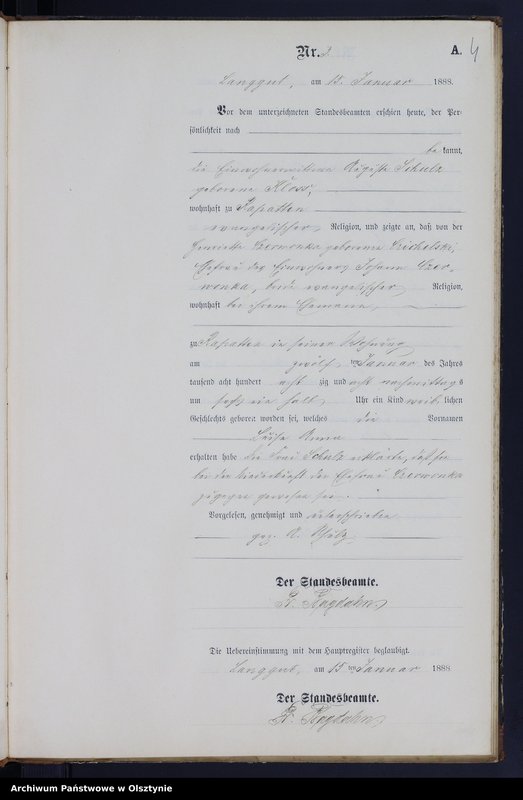 Nr. 3
A. 4
Langgut, am 15. Januar 1888.
Vor dem unterzeichneten Standesbeamten erschien heute, der Per-
sönlichkeit nach
be kannt,
die Einwohnerin Auguste Schulz
geborene Kloss,
wohnhaft zu Rapatten
evangelischer Religion, und zeigte an, daß von der
Henriette Czerwonka geborene
Ehefrau des Einwohners Johann Czer-
wonka, beide evangelischer Religion,
wohnhaft bei ihrem Ehemann,
zu Rapatten in seiner Wohnung
am zwölf ten Januar des Jahres
tausend acht hundert acht zig und acht nachmittags
um sechs ein halb Uhr ein Kind weib lichen
Geschlechts geboren worden sei, welches die Vornamen
Luise Anna
erhalten habe. Die Frau Schulz erklärte, daß sie
bei der Niederkunft der Ehefrau Czerwonka
zugegen gewesen sei.
Vorgelesen, genehmigt und unterschrieben
gez. A. Schulz
Der Standesbeamte.
Die Uebereinstimmung mit dem Hauptregister beglaubigt.
Langgut, am 15 ten Januar 1888
Der Standesbeamte.
Archiwum Państwowe w Olsztynie